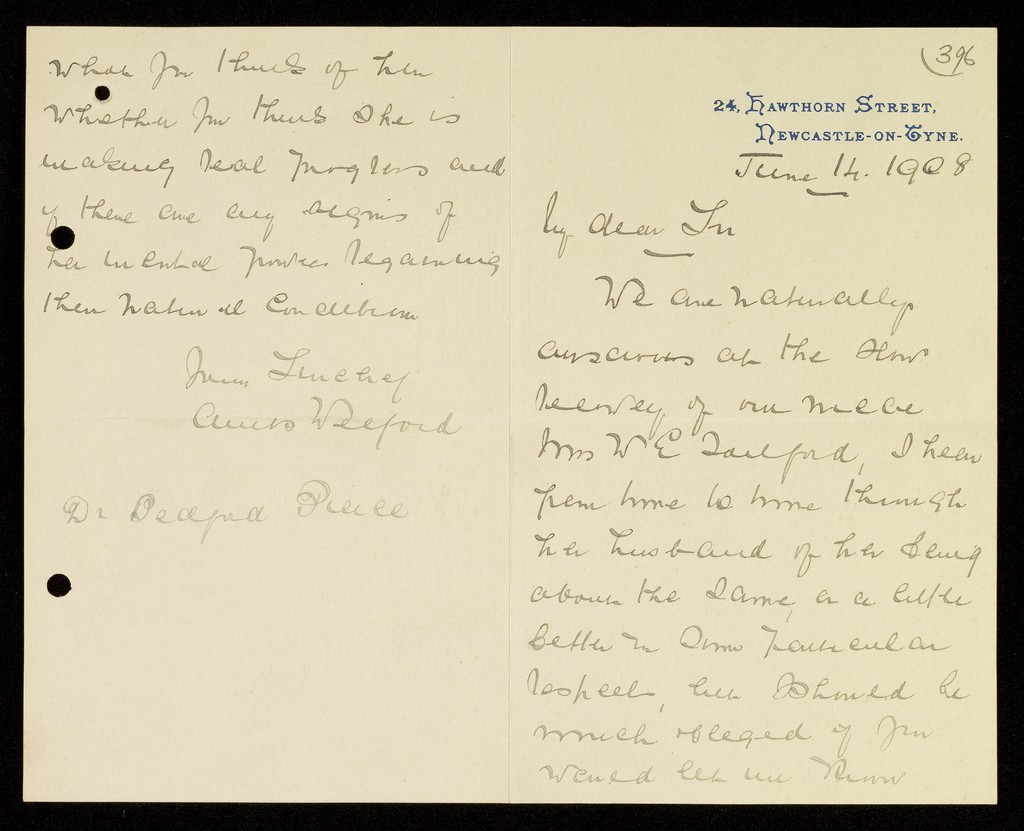 396
24, HAWTHORN STREET,
NEWCASTLE-ON-TYNE.
June 14. 1908
My dear Sir
We are naturally
anxious at the slow
recovery of our niece
Mrs W E Tailford, I hear
from time to time through
her husband of her being
about the same, or a little
better in some particular
respect, but I should be
much obliged if you
would let me know
what you think of her
whether you think she is
making real progress and
if there are any signs of
her mental powers regaining
their natural condition
Yours Sincerely
Welford
Dr Bedford Pierce